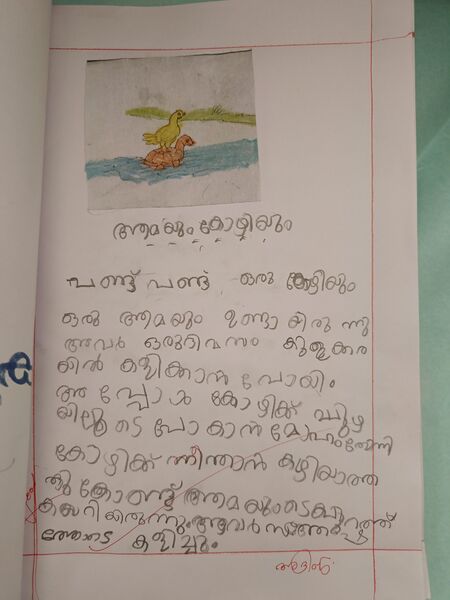 ആമയും കോഴിയും
പണ്ട് പണ്ട് ഒരു കോഴിയും
ഒരു ആമയും ഉണ്ടായിരുന്നു
അവർ ഒരുദിവസം കുളക്കര
യിൽ കളിക്കാൻ പോയി
അപ്പോൾ കോഴിക്ക് പുഴ
യിലൂടെ പോകാൻ മോഹംതോന്നി
കോഴിക്ക് നീന്താൻ കഴിയാത്ത
തു കൊണ്ട് ആമയുടെപുറത്ത്
കയറി ഇരുന്നു. അവർ സന്തോഷ
ത്തോടെ കളിച്ചു.